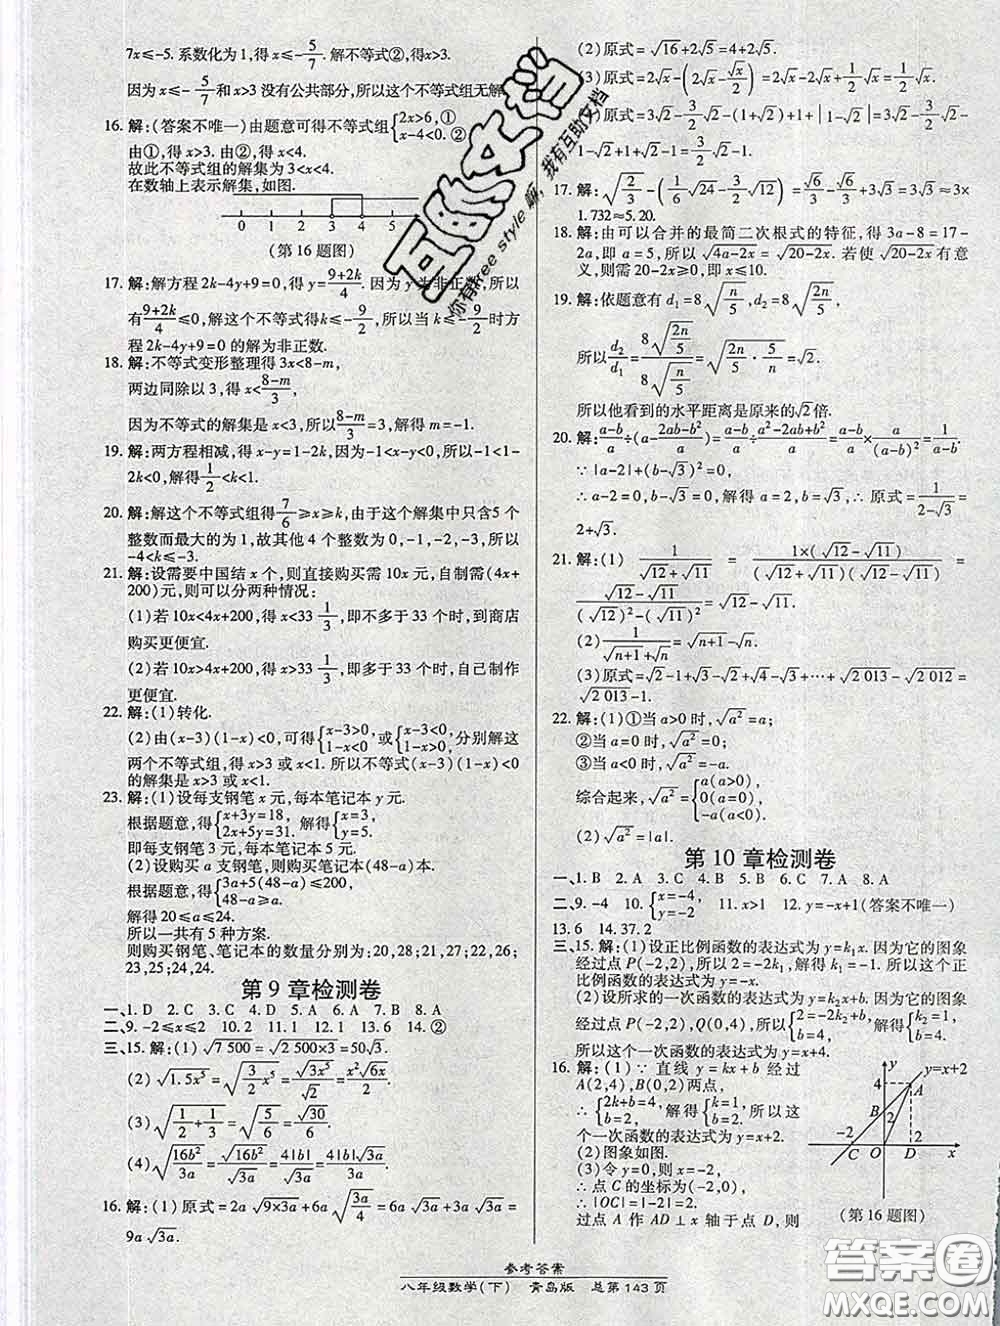 7x≤-5. 系数化为1,得x≤-5/7. 解不等式②,得x>3.
因为x≤-5/7和x>3没有公共部分,所以这个不等式组无解
16. 解:(答案不唯一)由题意可得不等式组{2x>6,① x-4<0.②
由①,得x>3. 由②,得x<4.
故此不等式组的解集为3<x<4.
在数轴上表示解集,如图.
0 1 2 3 4 5
(第16题图)
17. 解:解方程2k-4y+9=0,得y=(9+2k)/4. 因为y为非正数,所以
有(9+2k)/4≤0,解这个不等式得k≤-9/2,所以当k≤-9/2时方
程2k-4y+9=0的解为非正数.
18. 解:不等式变形整理得3x<8-m,
两边同除以3,得x<(8-m)/3,
因为不等式的解集是x<3,所以(8-m)/3=3,解得m=-1.
19. 解:两方程相减,得x-y=1-2k,因为-1<x-y<0,所以-1<1-
2k<0,解得1/2<k<1.
20. 解:解这个不等式组得7/6≥x≥k,由于这个解集中只含5个
整数而最大的为1,故其他4个整数为0,-1,-2,-3,所以
-4<k≤-3.
21. 解:设需要中国结x个,则直接购买需10x元,自制需(4x+
200)元,则可以分两种情况:
(1)若10x<4x+200,得x<33 1/3,即不多于33个时,到商店
购买更便宜.
(2)若10x>4x+200,得x>33 1/3,即多于33个时,自己制作
更便宜.
22. 解:(1)转化.
(2)由(x-3)(1-x)<0,可得{x-3>0, 1-x<0 或{x-3<0, 1-x>0,分别解这
两个不等式组,得x>3或x<1. 所以不等式(x-3)(1-x)<0
的解集是x>3或x<1.
23. 解:(1)设每支钢笔x元,每本笔记本y元.
根据题意,得{x+3y=18, 2x+5y=31. 解得{x=3, y=5.
即每支钢笔3元,每本笔记本5元.
(2)设购买a支钢笔,则购买笔记本(48-a)本.
根据题意,得{3a+5(48-a)≤200, 48-a≥a.
解得20≤a≤24.
所以一共有5种方案.
则购买钢笔、笔记本的数量分别为:20,28;21,27;22,26;
23,25;24,24.
第9章检测卷
一、1. D 2. C 3. C 4. D 5. D 6. B 7. A 8. A
二、9. -2≤x≤2 10. 2 11. 1 12. 1 13. 6 14. ②
三、15. 解:(1)√7 500=√(2 500×3)=50√3.
(2)√(1.5x⁵)=√(3/2 x⁵)=√(3x⁵)/√2=x²√(6x)/2.
(3)√(1/2+1/3)=√(5/6)=√30/6.
(4)√(16b²/3a)=√(16b²)/√(3a)=4|b|/√(3a)=4|b|√(3a)/3a.
16. 解:(1)原式=2a√(9×3a)+6a√(3a/4)=6a√(3a)+3a√(3a)=
9a√(3a).
(2)原式=√16+2√5=4+2√5.
(3)原式=2√x-(2√x-√x/2)=2√x-2√x+1/2√x=1/2√x.
3/2√2-(1+√2)+1+|√2-1|=3/2√2-
1-√2+1+√2-1=3/2√2-1.
17. 解:√(2/3)-(1/6√24-3/2√12)=√6/3-√6/3+3√3=3√3≈3×
1.732≈5.20.
18. 解:由可以合并的最简二次根式的特征,得3a-8=17-
2a,即a=5,所以√(4a-2x)=√(20-2x). 若使√(20-2x)有意
义,则需20-2x≥0,即x≤10.
19. 解:依题意有d₁=8√(n/5),d₂=8√(2n/5).
所以d₂/d₁=8√(2n/5)/8√(n/5)=√(2n/5·5/n)=√2.
所以他看到的水平距离是原来的√2倍.
20. 解:(a-b)/a÷(a-(2ab-b²)/a)=(a-b)/a÷(a²-2ab+b²)/a=(a-b)/a×a/(a-b)²=1/(a-b).
∵|a-2|+(b-√3)²=0,
∴a-2=0,b-√3=0,解得a=2,b=√3,∴原式=1/(2-√3)=
2+√3.
21. 解:(1)1/(√12+√11)=1×(√12-√11)/(√12+√11)(√12-√11)=
(√12-√11)/((√12)²-(√11)²)=√12-√11.
(2)1/(√(n+1)+√n)=√(n+1)-√n.
(3)原式=√2-1+√3-√2+√4-√3+…+√2 013-√2 012=
√2 013-1.
22. 解:(1)①当a>0时,√a²=a;
②当a=0时,√a²=0;
③当a<0时,√a²=-a.
综合起来,√a²={a(a>0), 0(a=0), -a(a<0).
(2)√a²=|a|.
第10章检测卷
一、1. B 2. A 3. C 4. B 5. C 6. C 7. A 8. A
二、9. -4 10. {x=-4, y=-2 11. x>1 12. y=-x+1(答案不唯一)
13. 6 14. 37.2
三、15. 解:(1)设正比例函数的表达式为y=k₁x. 因为它的图象
经过点P(-2,2),所以2=-2k₁,解得k₁=-1. 所以这个正
比例函数的表达式为y=-x.
(2)设所求的一次函数的表达式为y=k₂x+b. 因为它的图象
经过点P(-2,2),Q(0,4),所以{2=-2k₂+b, b=4. 解得{k₂=1, b=4.
所以这个一次函数的表达式为y=x+4.
16. 解:(1)∵直线y=kx+b经过
A(2,4),B(0,2)两点,
∴{2k+b=4, b=2, 解得{k=1, b=2. ∴这
个一次函数的表达式为y=x+2.
(2)图象如图.
(3)令y=0,得x=-2,
∴点C的坐标为(-2,0),
∴|OC|=|-2|=2.
过点A作AD⊥x轴于点D,则
y y=x+2
4 A
B 2
-2 2
C O D x
(第16题图)
参考答案
八年级数学(下) 青岛版 总第143页
互助文档
嘛,我有互助文档
你有free style
答案圈
MXQE.COM